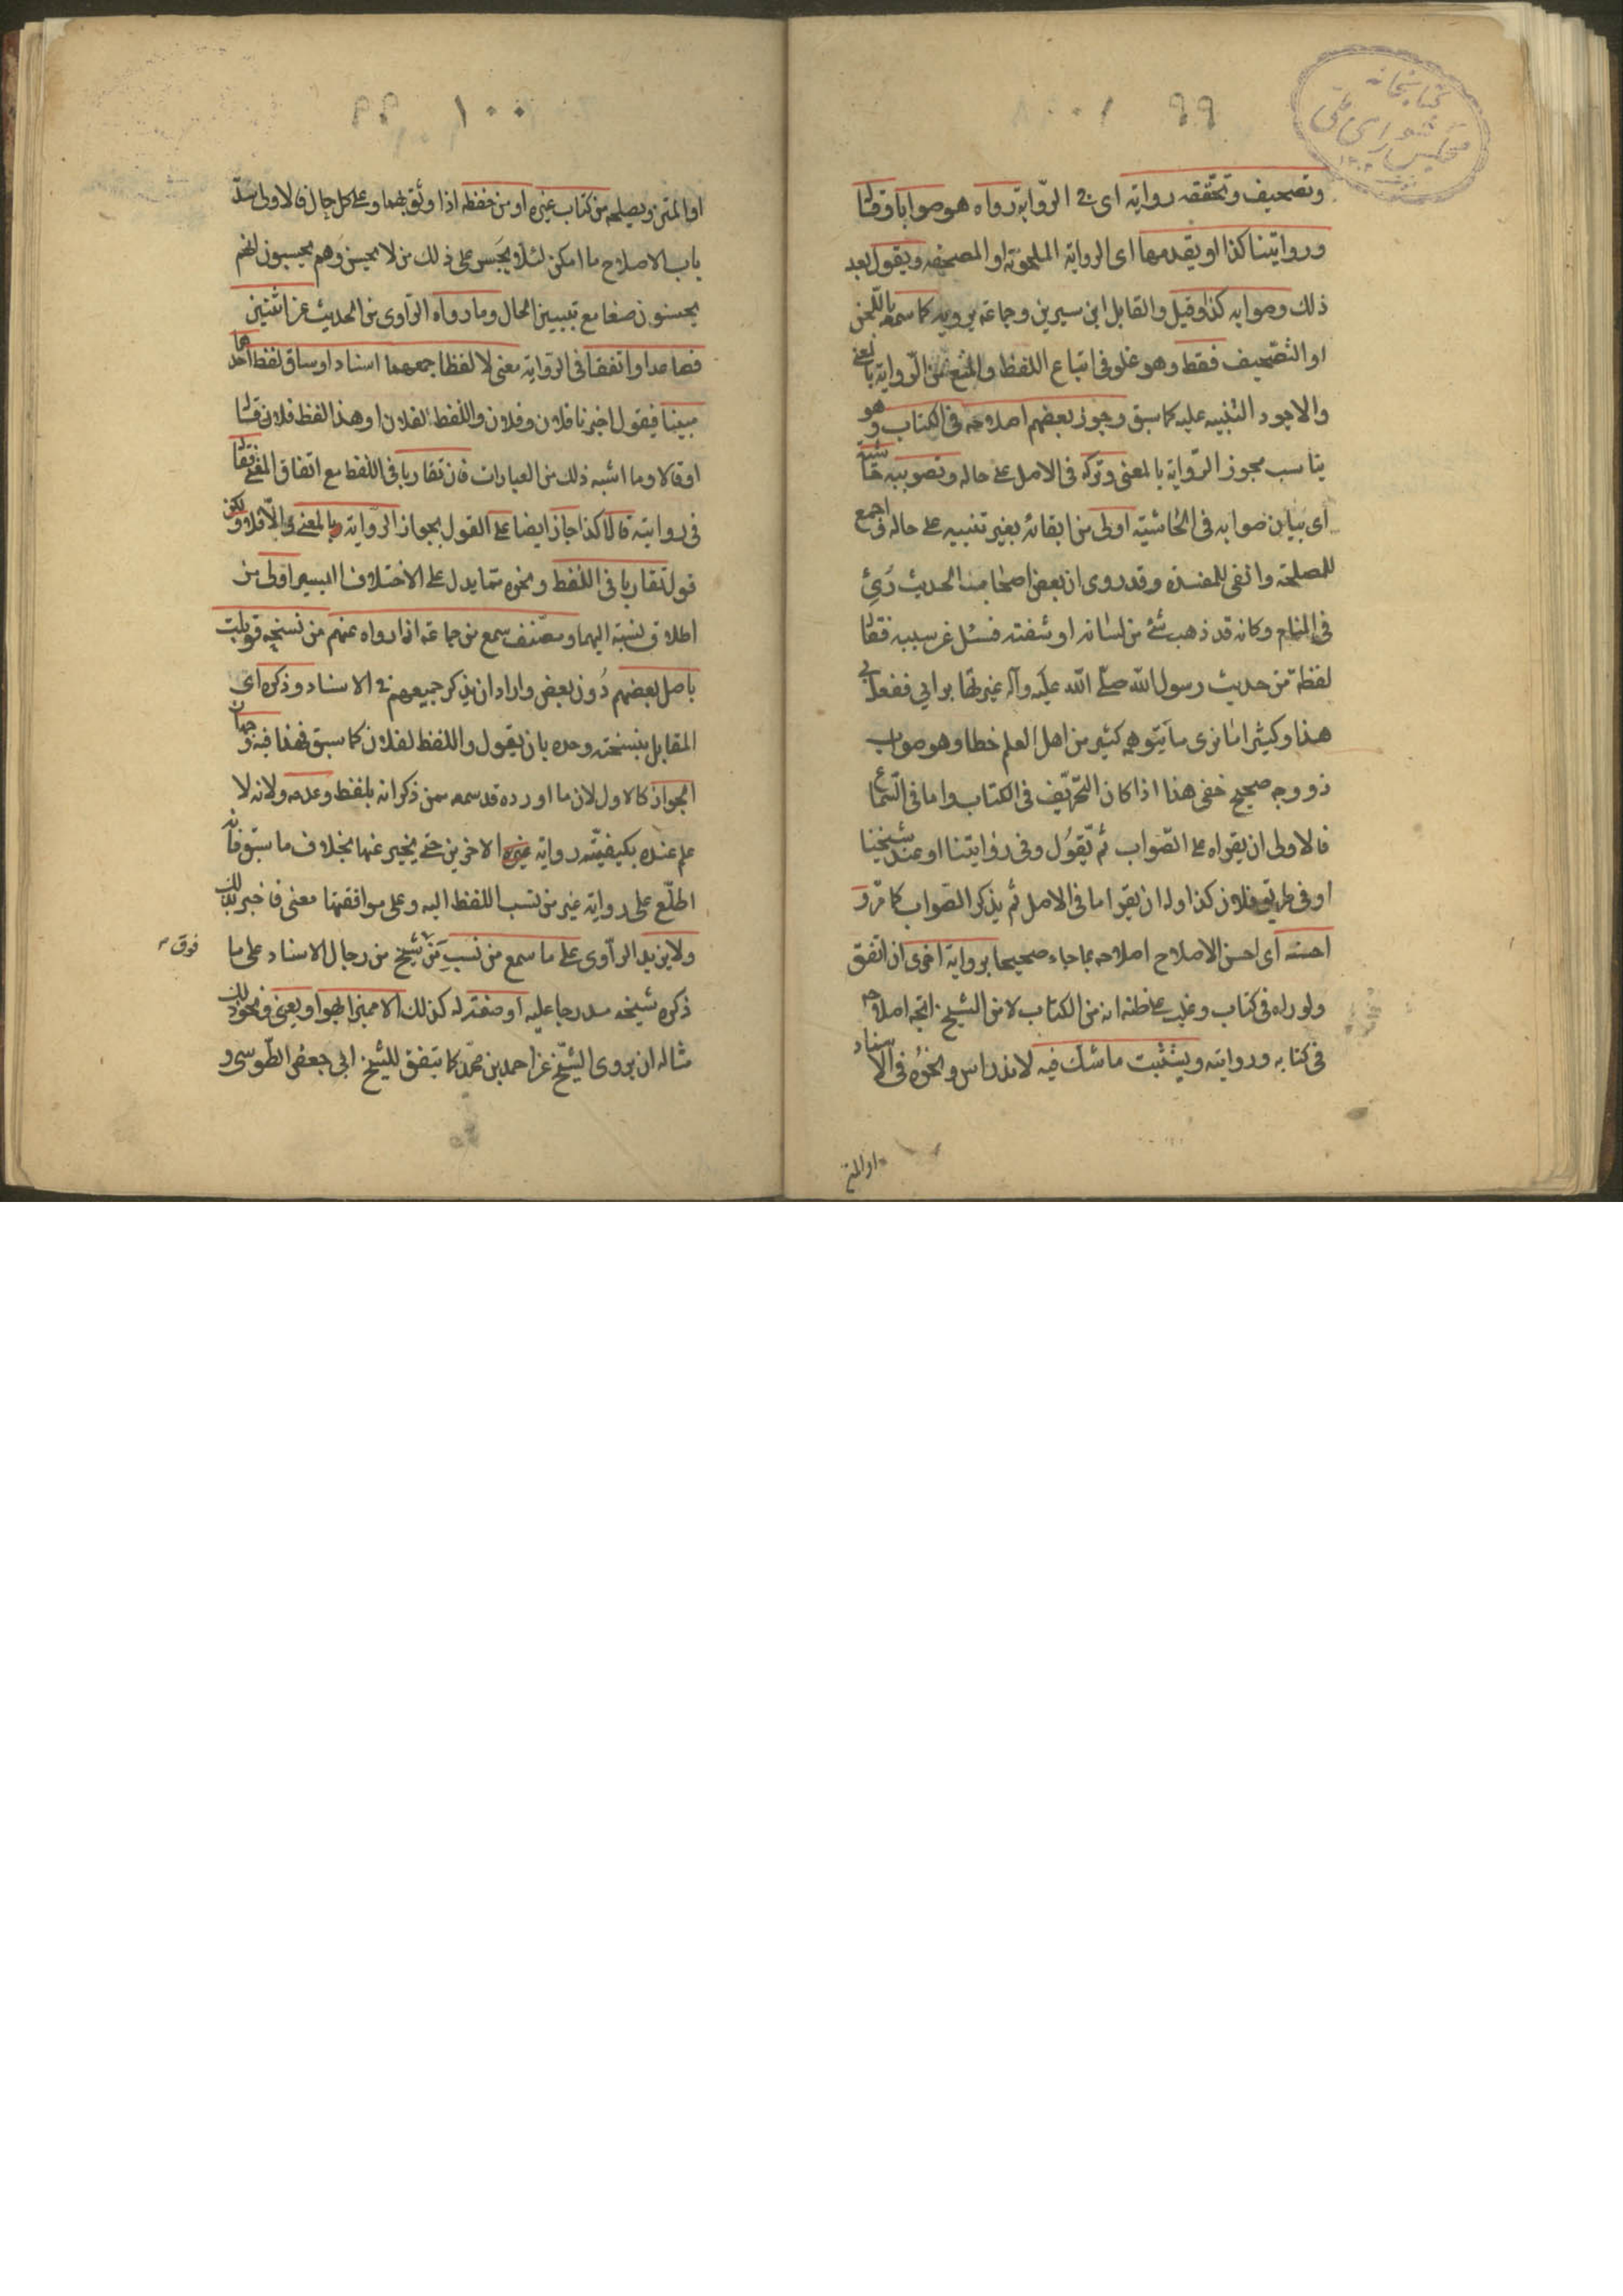 كتابخانه
مجلس شورای ملی
٩٩ ١٠٠
وتصحيف وتحققه روايته اى فى الرّواية رواه هو صوابا وقال
وروايتنا كذا او يقدمها اى الرواية الملحونة او المصحفه ويقول بعد
ذلك وصوابه كذا وقيل والقايل ابن سيرين وجماعة يرويه كما سمعه باللّحن
او التصحيف فقط وهو غلو فى اتباع اللفظ والمنع من الرّواية بالمعنى
والاجود التنبيه عليه كما سبق وجوز بعضهم اصلاحه فى الكتاب وهو
يناسب مجوز الرّواية بالمعنى وتركه فى الاصل على حاله وتصويبه حاشية
اى بيان صوابه فى الحاشية اولى من ابقائه بغير تنبيه على حاله فى اجمع
للمصلحة وانفى للمفسدة وقد روى ان بعض اصحاب الحديث رُئِى
فى المنام وكانه قد ذهب شئ من لسانه او شفته فسئل عن سببه فقال
لفظة من حديث رسول الله صلّى الله عليه وآله غيرتها برايى ففعل بى
هذا وكثيرا ما نرى ما يتوهمه كثير من اهل العلم خطا وهو صواب
ذو وجه صحيح خفى هذا اذا كان التحريف فى الكتاب واما فى السّماع
فالاولى ان يقراه على الصّواب ثم يقول وفى روايتنا او عند شيخنا
او فى طريق فلان كذا وله ان يقرا ما فى الاصل ثم يذكر الصّواب كما مرّ و
احسنه اى احسن الاصلاح اصلاحه بما جاء صحيحا برواية اخرى ان اتفق
ولو راه فى كتاب وغلب على ظنه انه من الكتاب لا من الشيخ اتجه اصلاحه
فى كتابه وروايته ويستثبت ما شك فيه لاندراس ونحوه فى الاسناد
او المتن
١٠٠ ٩٩
او المتن ويصلحه من كتاب غيره او من حفظه اذا وثق بهما وعلى كل حال فالاولى سدّ
باب الاصلاح ما امكن لئلا يجسر على ذلك من لا يحسن وهم يحسبون انهم
يحسنون صنعا مع تبيين الحال وما رواه الرّاوى من الحديث عن اثنين
فصاعدا واتفقا فى الرّواية معنى لا لفظا جمعهما اسنادا وساق لفظ احدهما
مبينا فيقول اخبرنا فلان وفلان واللفظ لفلان او هذا لفظ فلان قال
او قالا وما اشبه ذلك من العبارات فان تقاربا فى اللفظ مع اتفاق المعنى فقال
فى روايته قالا كذا جاز ايضا على القول بجواز الرّواية بالمعنى والّا فلا ولكن
قوله تقاربا فى اللفظ ونحوه مما يدل على الاختلاف اليسير اولى من
اطلاق نسبته اليهما ومصنف سمع من جماعة اذا رواه عنهم من نسخه قوبلت
باصل بعضهم دون بعض واراد ان يذكر جميعهم فى الاسناد وذكره اى
المقابل بنسخته وحده بان يقول واللفظ لفلان كما سبق فهذا فيه وجهان
الجواز كالاول لان ما اورده قد سمعه ممن ذكر انه بلفظه وعدمه ولانه لا
علم عنده بكيفيّة رواية غيره الاخرين حتى يخبر عنها بخلاف ما سبق فانه
اطلّع على رواية غير من نسب اللفظ اليه وعلى موافقتها معنى فاخبر بذلك
ولا يزيد الرّاوى على ما سمع من نسب من شيخ من رجال الاسناد على ما
فوق
ذكره شيخه مدرجا عليه او صفته له كذلك الا مميزا بهو او يعنى ونحو ذلك
مثاله ان يروى الشيخ عن احمد بن محمّد كما يتفق للشيخ ابى جعفر الطّوسى و